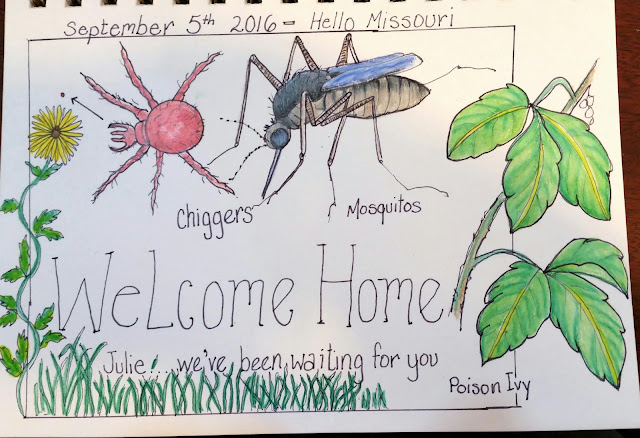 September 5th 2016 - Hello Missouri
Chiggers
Mosquitos
Welcome Home
Julie!...we've been waiting for you
Poison Ivy